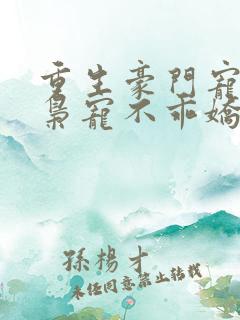 重生豪門寵
梟寵不乖嬌
孫楊才
未經同意禁止轉載